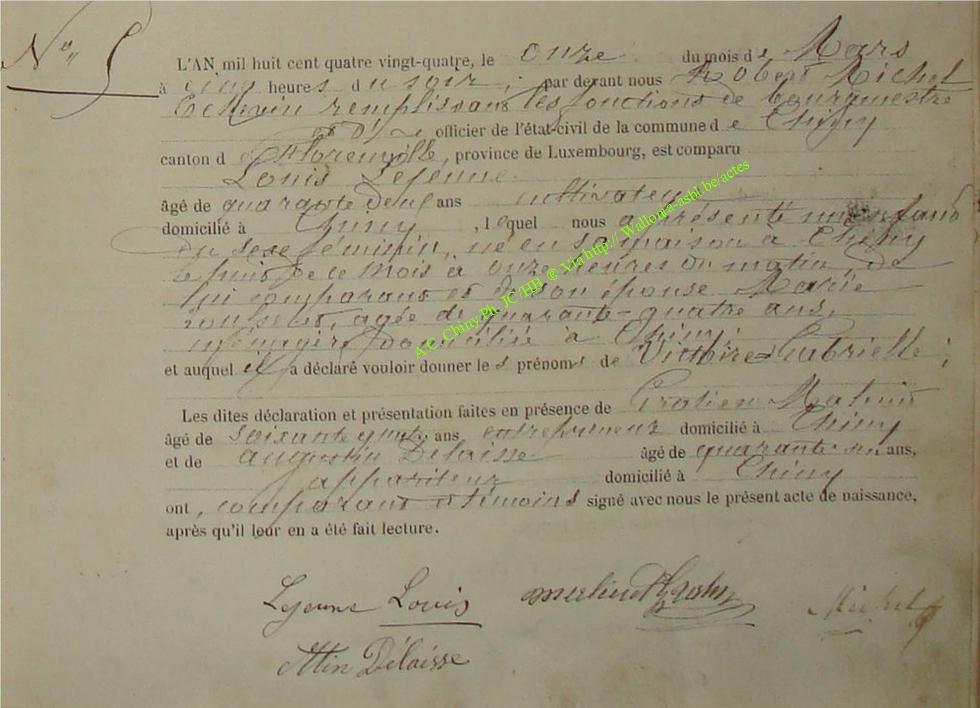 N° 5
L'AN mil huit cent quatre vingt-quatre, le onze du mois de Mars
à cinq heures du soir, par devant nous Robert Michel
Echevin remplissant les fonctions de bourgmestre
et d' officier de l'état-civil de la commune de Chiny
canton de Florenville, province de Luxembourg, est comparu
Louis Lejeune
âgé de quarante deux ans cultivateur
domicilié à Chiny, lequel nous a présenté un enfant
du sexe féminin, né en sa maison à Chiny
le de ce mois à onze heures du matin, de
lui comparant et de son épouse Marie
agée de quarante-quatre ans,
ménagère domiciliée à Chiny;
et auquel il a déclaré vouloir donner les prénoms de Victoire Gabrielle;
Les dites déclaration et présentation faites en présence de
âgé de soixante ans entrepreneur domicilié à Chiny
et de Augustin Délaisse âgé de quarante ans,
appariteur domicilié à Chiny
ont, comparant et témoins signé avec nous le présent acte de naissance,
après qu'il leur en a été fait lecture.
Lejeune Louis Michel
Attin Délaisse
A.E. Chiny Ph. JC /HB ® Via http:// Wallonia-asbl.be/actes